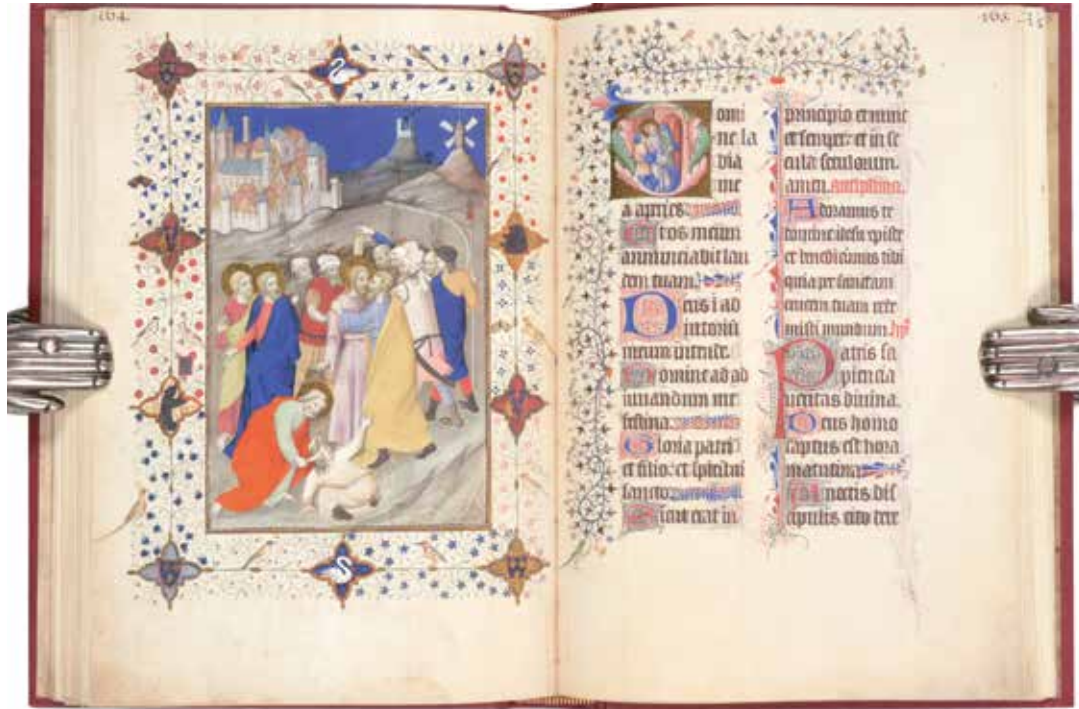 164.
165.
Domi
ne la
bia
me
a aperies.
Et os meum
annunciabit lau
dem tuam.
Deus i ad
iutoriū
meum intende.
Domine ad ad
iuuandum me
festina.
Gloria patri
et filio: et spiritui
sancto.
Sicut erat in
principio et nunc
et semper: et in se
cula seculorum.
amen.
Adoramus te
domine ihesu xpiste
et benedicimus tibi
quia per sanctam
crucem tuam rede
misti mundum.
Patris sa
piencia
ueritas diuina.
Deus homo
captus est hora
matutina.
A notis dis
cipulis cito dere